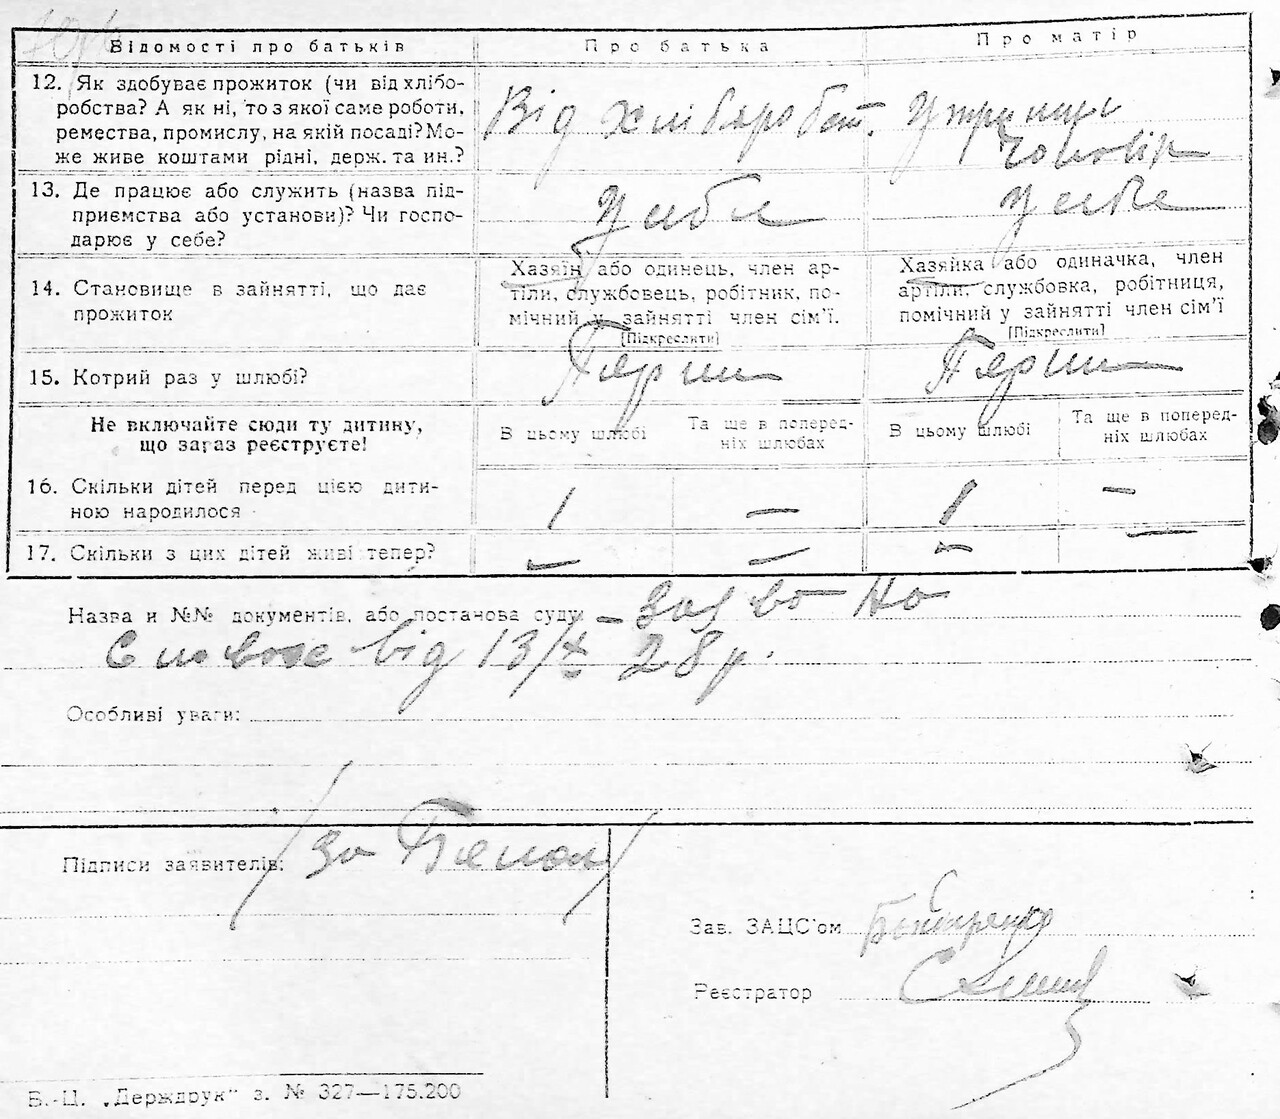 Відомості про батьків
Про батька
Про матір
12. Як здобуває прожиток (чи від хлібо-
робства? А як ні, то з якої саме роботи,
ремества, промислу, на якій посаді? Мо-
же живе коштами рідні, держ. та ин.?
Від хлібаробст.
Утрим
чоловік
13. Де працює або служить (назва під-
приємства або установи)? Чи госпо-
дарює у себе?
У себе
У себе
14. Становище в зайнятті, що дає
прожиток
Хазяїн або одинець, член ар-
тіли, службовець, робітник, по-
мічний у зайнятті член сім'ї.
[Підкреслити]
Хазяйка або одиначка, член
артіли, службовка, робітниця,
помічний у зайнятті член сім'ї
[Підкреслити]
15. Котрий раз у шлюбі?
Перши
Перши
Не включайте сюди ту дитину,
що зараз реєструєте!
В цьому шлюбі
Та ще в поперед-
ніх шлюбах
В цьому шлюбі
Та ще в поперед-
ніх шлюбах
16. Скільки дітей перед цією дити-
ною народилося
1 — 1 —
17. Скільки з цих дітей живі тепер?
— — — —
Назва и №№ документів, або постанова суду:
від 13/X 28 р.
Особливі уваги:
Підписи заявителів:
за
Зав. ЗАЦС'ом
Реєстратор
В.-Ц. „Держдрук" з. № 327—175.200